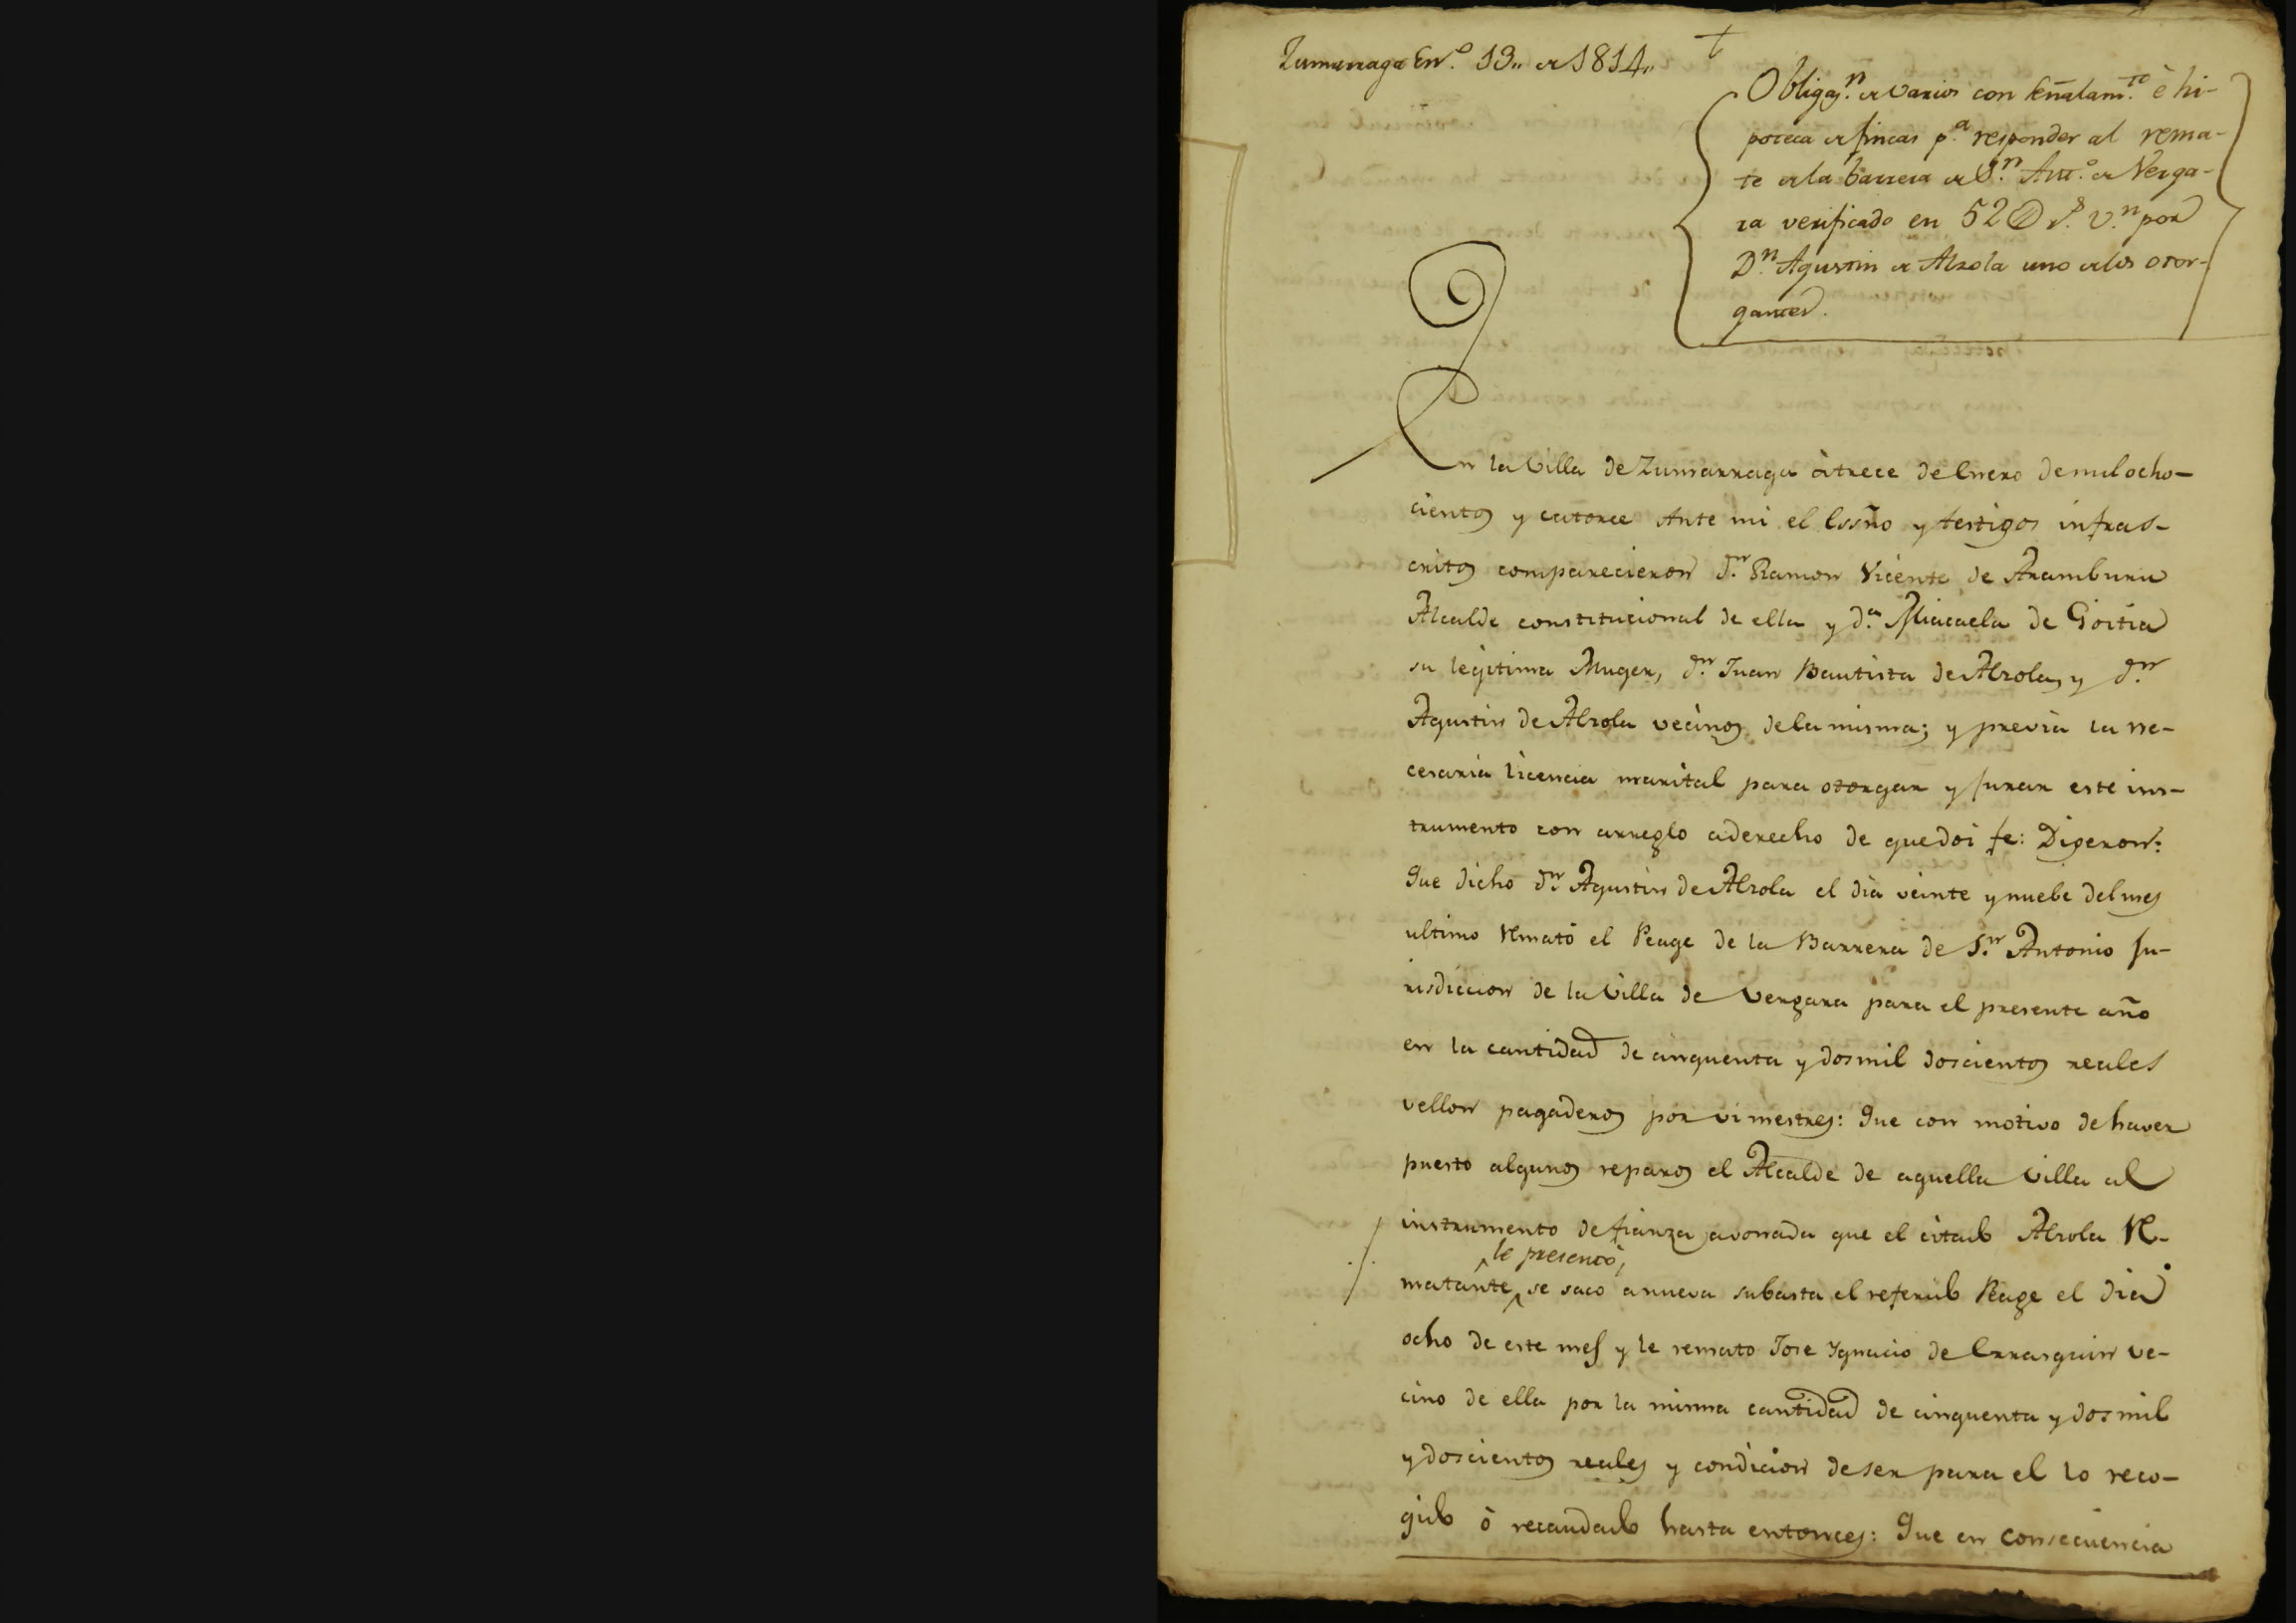 Zumarraga En.º 13,, de 1814,,
Obligaz.n de varios con señalam.to è hi-
poteca de fincas p.a responder al rema-
te de la barrera de S.n Ant.º de Verga-
ra verificado en 52@ r.s v.n por
D.n Agustin de Alzola uno de los otor-
gantes.
En la Villa de Zumarraga à trece de Enero de mil ocho-
cientos y catorce Ante mi el Essño y testigos infras-
critos comparecieron d.n Ramon Vicente de Aramburu
Alcalde constitucional de ella y d.a Micaela de Goitia
su legitima Muger, d.n Juan Bautista de Alzola, y d.n
Agustin de Alzola vecinos de la misma; y previa la ne-
cesaria licencia marital para otorgar y jurar este ins-
trumento con arreglo a derecho de que doi fe: Digeron:
Que dicho d.n Agustin de Alzola el dia veinte y nuebe del mes
ultimo Rmató el Peage de la Barrera de S.n Antonio ju-
risdiccion de la Villa de Vergara para el presente año
en la cantidad de cinquenta y dos mil doscientos reales
vellon pagaderos por vimestres: Que con motivo de haver
puesto algunos reparos el Alcalde de aquella Villa al
instrumento de fianza avonada que el citado Alzola R-
le presentó,
matante se sacó a nueva subasta el referido Peage el dia
ocho de este mes y le remato Jose Ygnacio de Errasquin ve-
cino de ella por la misma cantidad de cinquenta y dos mil
y doscientos reales y condicion de ser para el lo reco-
gido ò recaudado hasta entonces: Que en consecuencia